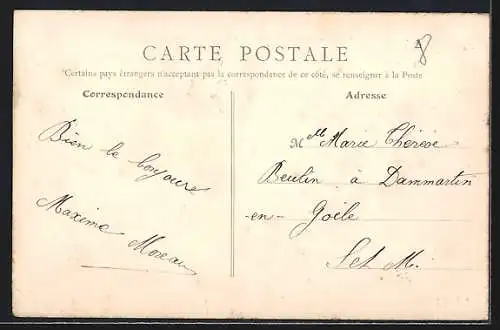 CARTE POSTALE
Certains pays étrangers n'acceptant pas la correspondance de ce côté, se renseigner à la Poste
Correspondance
Bien le bonjour
Maxime Moreau
Adresse
8
Mlle Marie Thérèse
Beulin à Dammartin
-en- Goële
S et M.